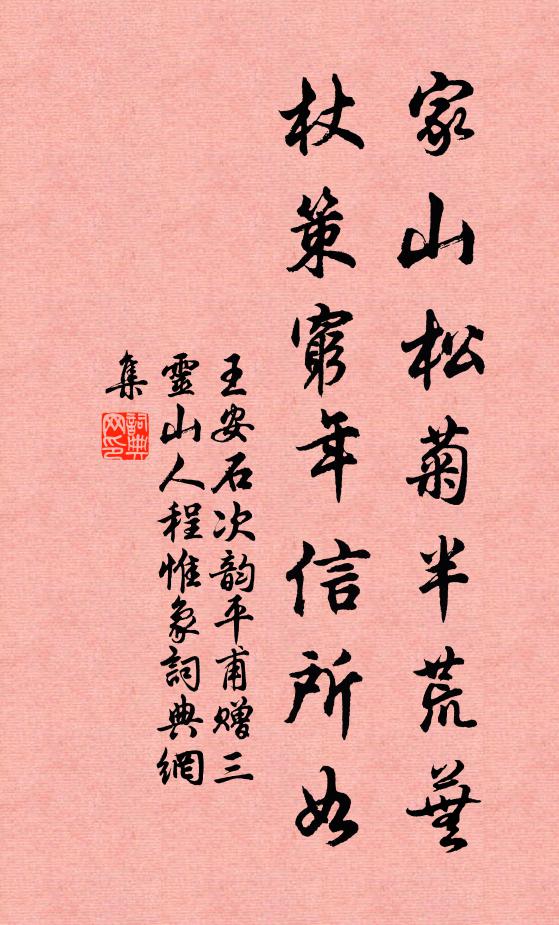 家山松菊半荒蕪
杖策窮年信所如
王安石次韵平甫赠三
靈山人程惟象詞典網
集
詞典网印